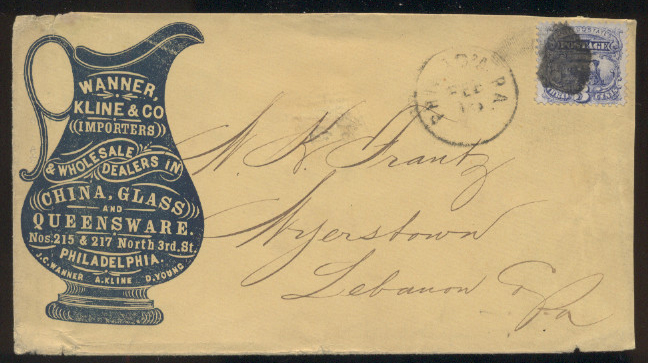 WANNER,
KLINE & CO
IMPORTERS
& WHOLESALE
DEALERS IN
CHINA, GLASS
AND
QUEENSWARE.
Nos. 215 & 217 North 3rd. St.
PHILADELPHIA.
J.C. WANNER A. KLINE D. YOUNG
PHILADA. PA.
POSTAGE
CENTS
Frantz
Myerstown
Lebanon Co
Pa